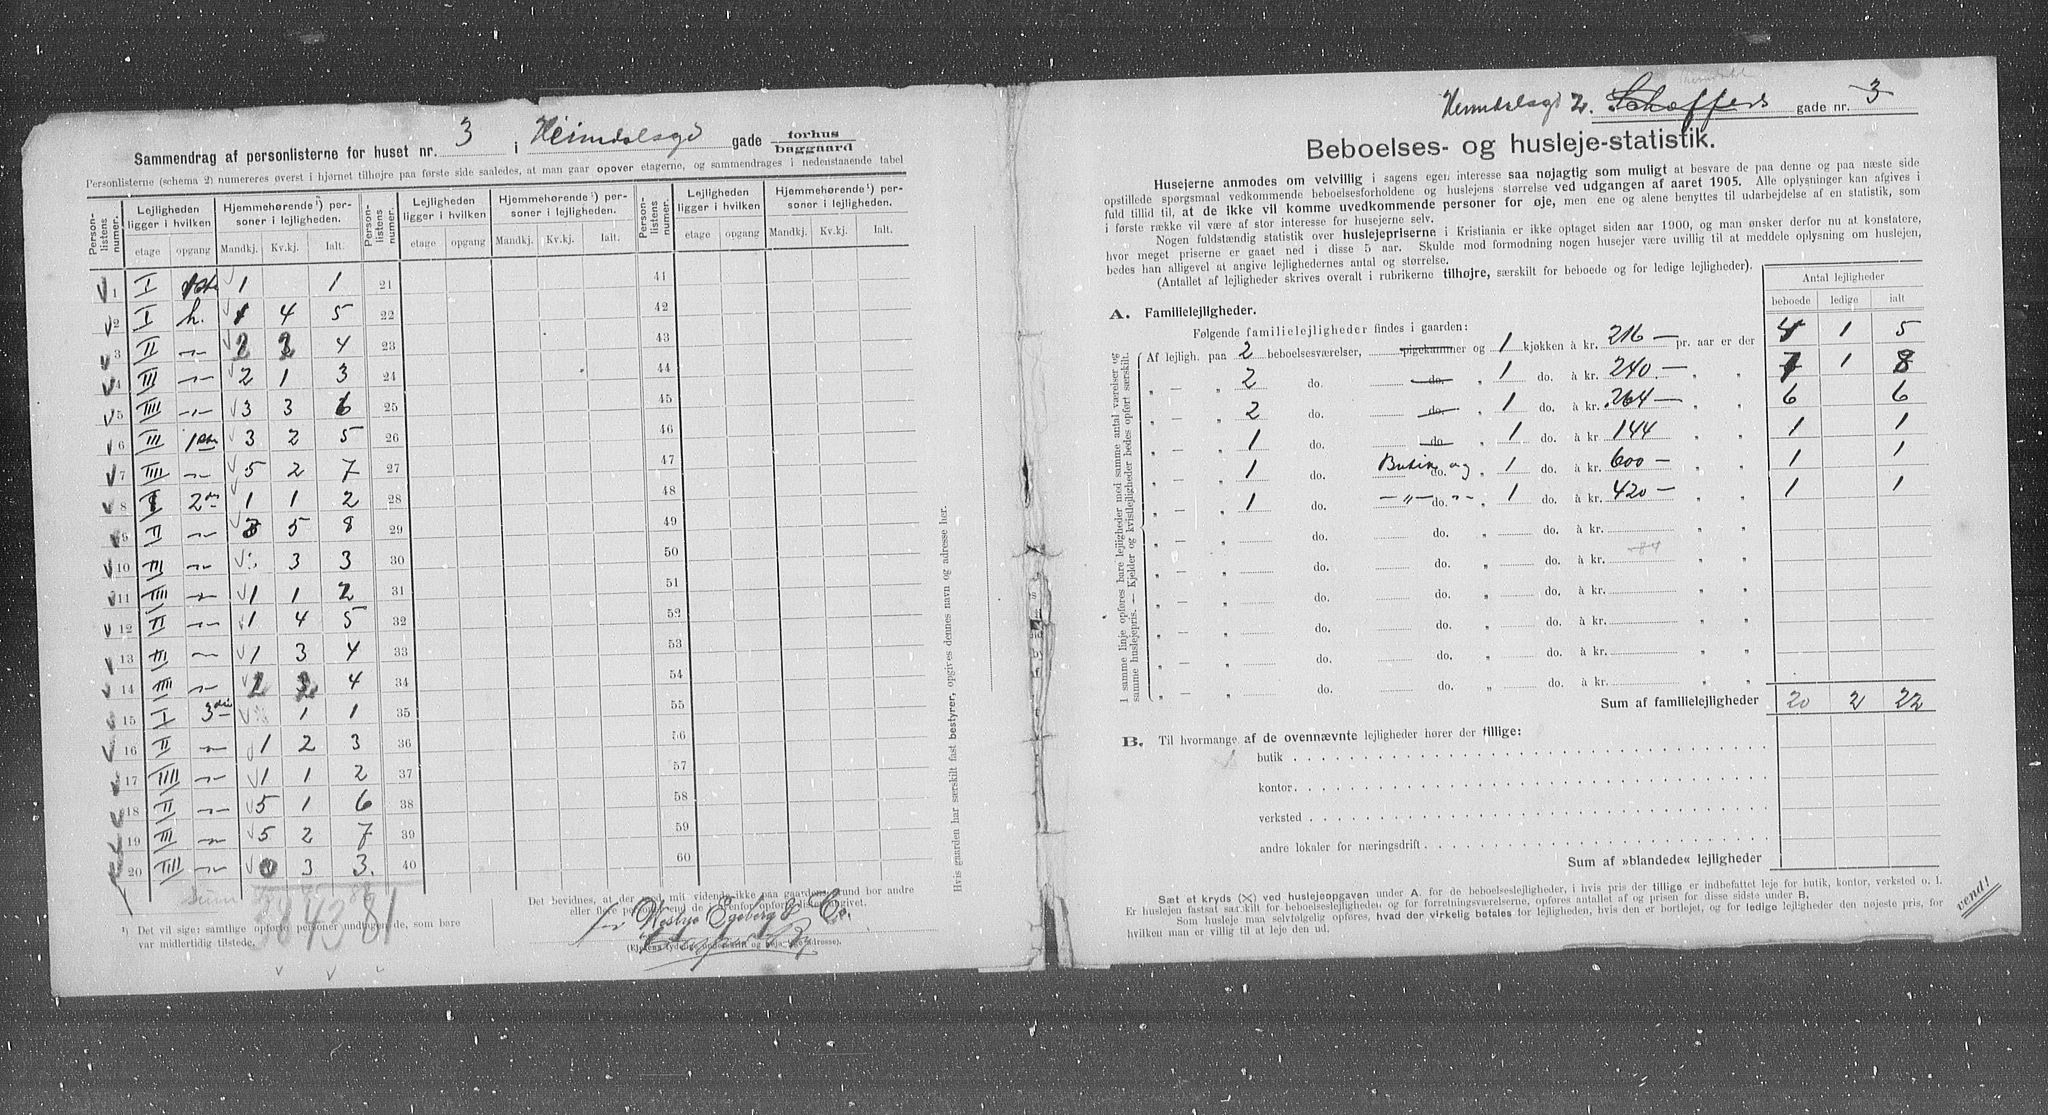 Sammendrag af personlisterne for huset nr. 3 i Heimdalsgd gade forhus
baggaard
Personlisterne (schema 2) numereres øverst i hjørnet tilhøjre paa første side saaledes, at man gaar opover etagerne, og sammendrages i nedenstaaende tabel
Person-listens numer. Lejligheden ligger i hvilken Hjemmehørende ¹) personer i lejligheden. Person-listens numer. Lejligheden ligger i hvilken Hjemmehørende ¹) personer i lejligheden. Person-listens numer. Lejligheden ligger i hvilken Hjemmehørende ¹) personer i lejligheden.
etage opgang Mandkj. Kv.kj. Ialt. etage opgang Mandkj. Kv.kj. Ialt. etage opgang Mandkj. Kv.kj. Ialt.
1 I 1 1 21 41
2 I h. 1 4 5 22 42
3 II -"- 2 2 4 23 43
4 III -"- 2 1 3 24 44
5 IIII -"- 3 3 6 25 45
6 III 3 2 5 26 46
7 IIII -"- 5 2 7 27 47
8 I 2den 1 1 2 28 48
9 II -"- 3 5 8 29 49
10 III -"- 3 3 30 50
11 IIII -"- 1 1 2 31 51
12 II -"- 1 4 5 32 52
13 III -"- 1 3 4 33 53
14 IIII -"- 2 2 4 34 54
15 I 3die 1 1 35 55
16 II -"- 1 2 3 36 56
17 IIII -"- 1 1 2 37 57
18 II -"- 5 1 6 38 58
19 III -"- 5 2 7 39 59
20 IIII -"- 0 3 3. 40 60
Sum
38 43 81
¹) Det vil sige: samtlige opførte personer undtagen de, som bare
var midlertidig tilstede.
Det bevidnes, at der med mit vidende ikke paa gaardens grund bor andre
eller flere personer end de i ovenfor opførte lister opgivet.
for Egeberg & Co.
(Ejerens tydelige underskrift og nøjagtige adresse).
Hvis gaarden har særskilt fast bestyrer, opgives dennes navn og adresse her.
Heimdalsgd Schæffers gade nr. 3
Beboelses- og husleje-statistik.
Husejerne anmodes om velvillig i sagens egen interesse saa nøjagtig som muligt at besvare de paa denne og paa næste side
opstillede spørgsmaal vedkommende beboelsesforholdene og huslejens størrelse ved udgangen af aaret 1905. Alle oplysninger kan afgives i
fuld tillid til, at de ikke vil komme uvedkommende personer for øje, men ene og alene benyttes til udarbejdelse af en statistik, som
i første række vil være af stor interesse for husejerne selv.
Nogen fuldstændig statistik over huslejepriserne i Kristiania er ikke optaget siden aar 1900, og man ønsker derfor nu at konstatere,
hvor meget priserne er gaaet ned i disse 5 aar. Skulde mod formodning nogen husejer være uvillig til at meddele oplysning om huslejen,
bedes han alligevel at angive lejlighedernes antal og størrelse.
(Antallet af lejligheder skrives overalt i rubrikerne tilhøjre, særskilt for beboede og for ledige lejligheder).
Antal lejligheder
beboede ledige ialt
A. Familielejligheder.
Følgende familielejligheder findes i gaarden:
I samme linje opføres bare lejligheder med samme antal værelser og
samme huslejepris. — Kjelder og kvistlejligheder bedes opført særskilt.
Af lejligh. paa 2 beboelsesværelser, spigekammer og 1 kjøkken à kr. 216 — pr. aar er der 4 1 5
„ — „ 2 do. do. „ 1 do. à kr. 240. — „ „ 7 1 8
„ — „ 2 do. do. „ 1 do. à kr. 264 — „ „ 6 6
„ — „ 1 do. do. „ 1 do. à kr. 144 „ „ 1 1
„ — „ 1 do. Butik og do. „ 1 do. à kr. 600 — „ „ 1 1
„ — „ 1 do. -"- do. -"- „ 1 do. à kr. 420 — „ „ 1 1
„ — „ do. do. „ do. à kr. „ „
„ — „ do. do. „ do. à kr. „ „
„ — „ do. do. „ do. à kr. „ „
„ — „ do. do. „ do. à kr. „ „
„ — „ do. do. „ do. à kr. „ „
„ — „ do. do. „ do. à kr. „ „
Sum af familielejligheder 20 2 22
B. Til hvormange af de ovennævnte lejligheder hører der tillige:
butik
kontor
verksted
andre lokaler for næringsdrift
Sum af »blandede« lejligheder
Sæt et kryds (X) ved huslejeopgaven under A. for de beboelseslejligheder, i hvis pris der tillige er indbefattet leje for butik, kontor, verksted o. l.
Er huslejen fastsat særskilt for beboelseslejligheden og for forretningsværelserne, opføres antallet af og prisen for disse sidste under B.
Som husleje maa selvfølgelig opføres, hvad der virkelig betales for lejligheden, hvis den er bortlejet, og for ledige lejligheder den nøjeste pris, for
hvilken man er villig til at leje den ud.
vend!